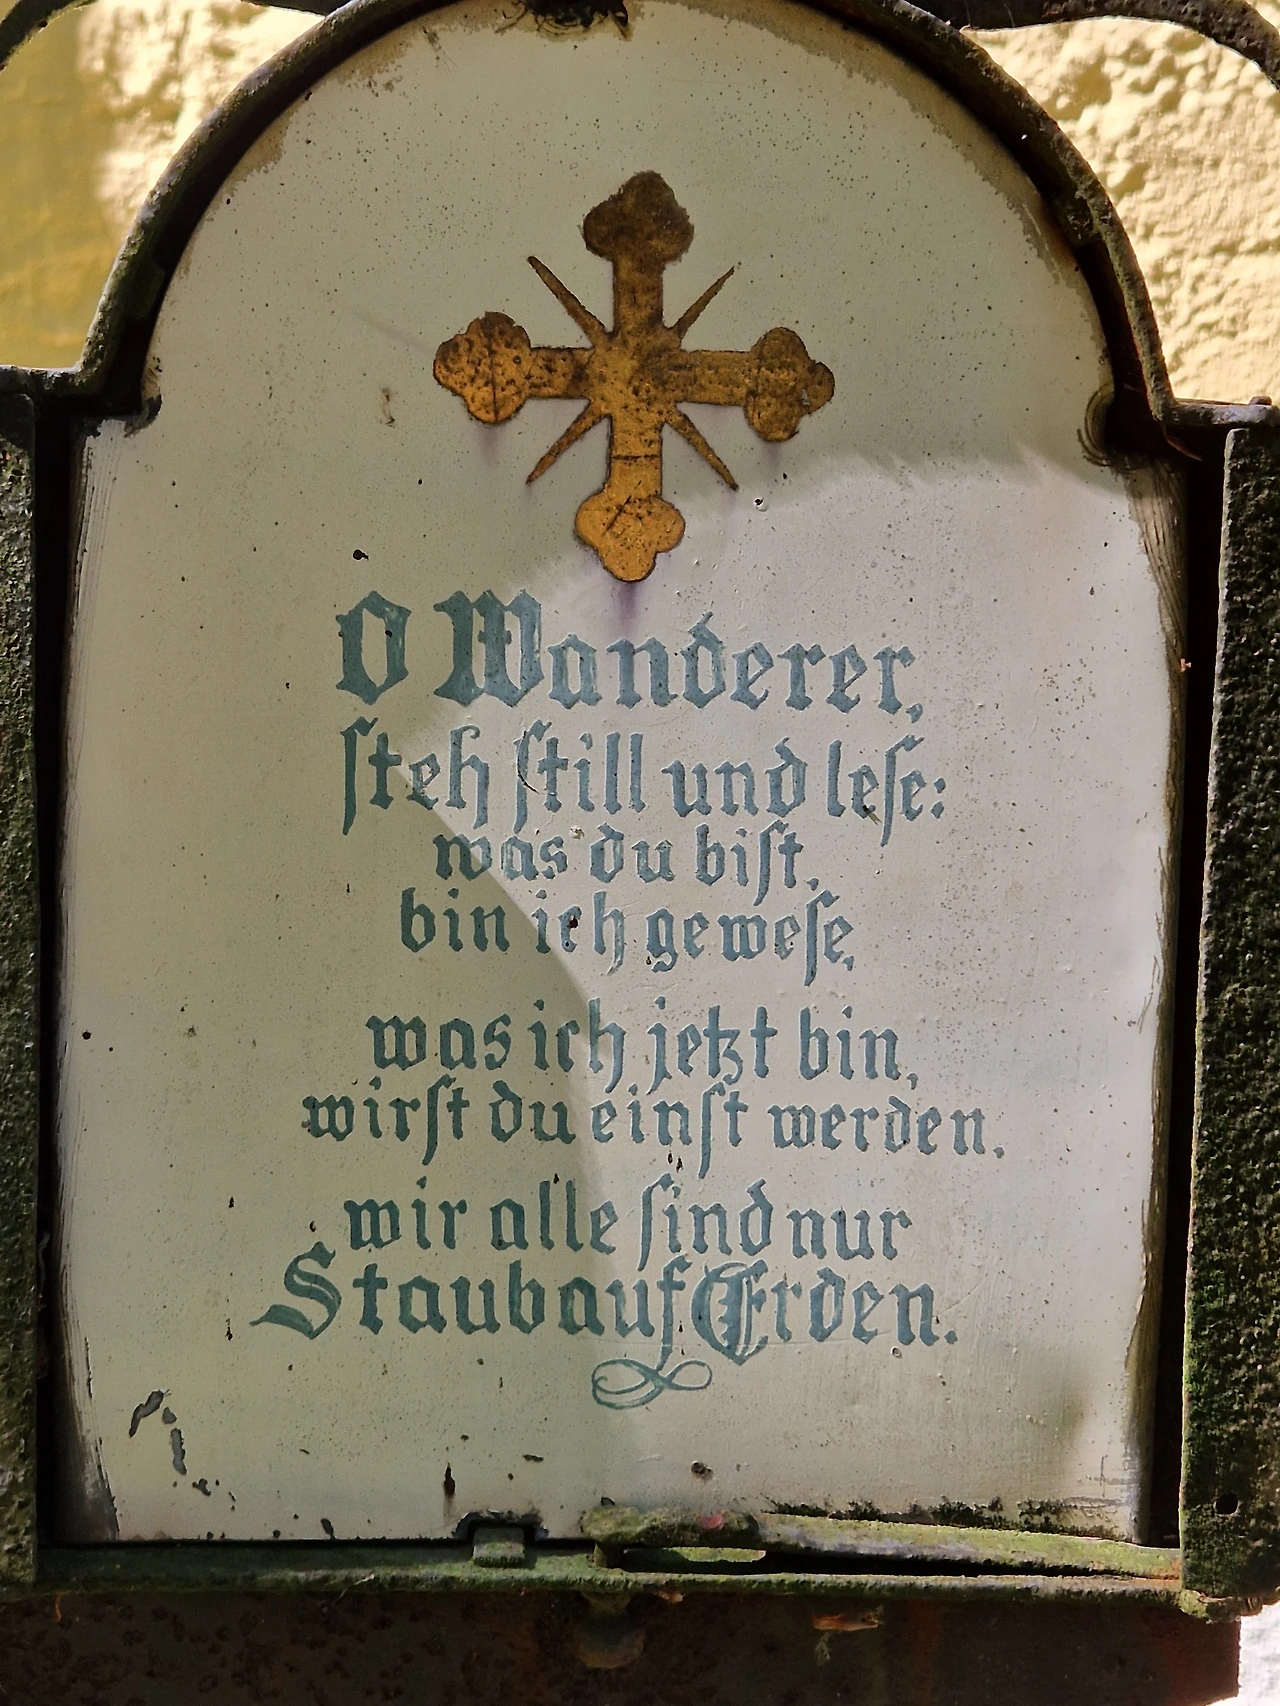 O Wanderer,
steh still und lese:
was du bist,
bin ich gewese,
was ich jetzt bin,
wirst du einst werden.
wir alle sind nur
Staub auf Erden.